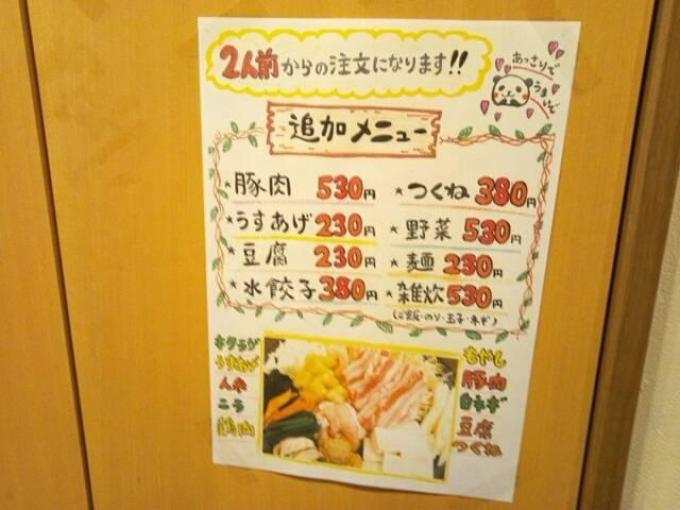 2人前からの注文になります!!
あっさりで
うまいで
追加メニュー
*豚肉 530円 *つくね 380円
*うすあげ 230円 *野菜 530円
*豆腐 230円 *麺 230円
*水餃子 380円 *雑炊 530円
(ご飯・のり・玉子・ネギ)
うすあげ
人参
ニラ
鶏肉
もやし
豚肉
白ネギ
豆腐
つくね